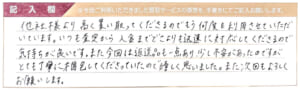 記入欄
今回ご利用いただきました買取サービスの感想を、手書きにてご記入お願いします。
他社様より高く買い取ってくださるのでもう何度も利用させていただ
いています。いつも査定から入金までどこよりも迅速に対応してくださるので
気持ちが良いです。また今回は返送品も一点あり少し不安があったのですが
とても丁寧に梱包してくださっていたので嬉しく思いました。また次回もよろしく
お願いします。